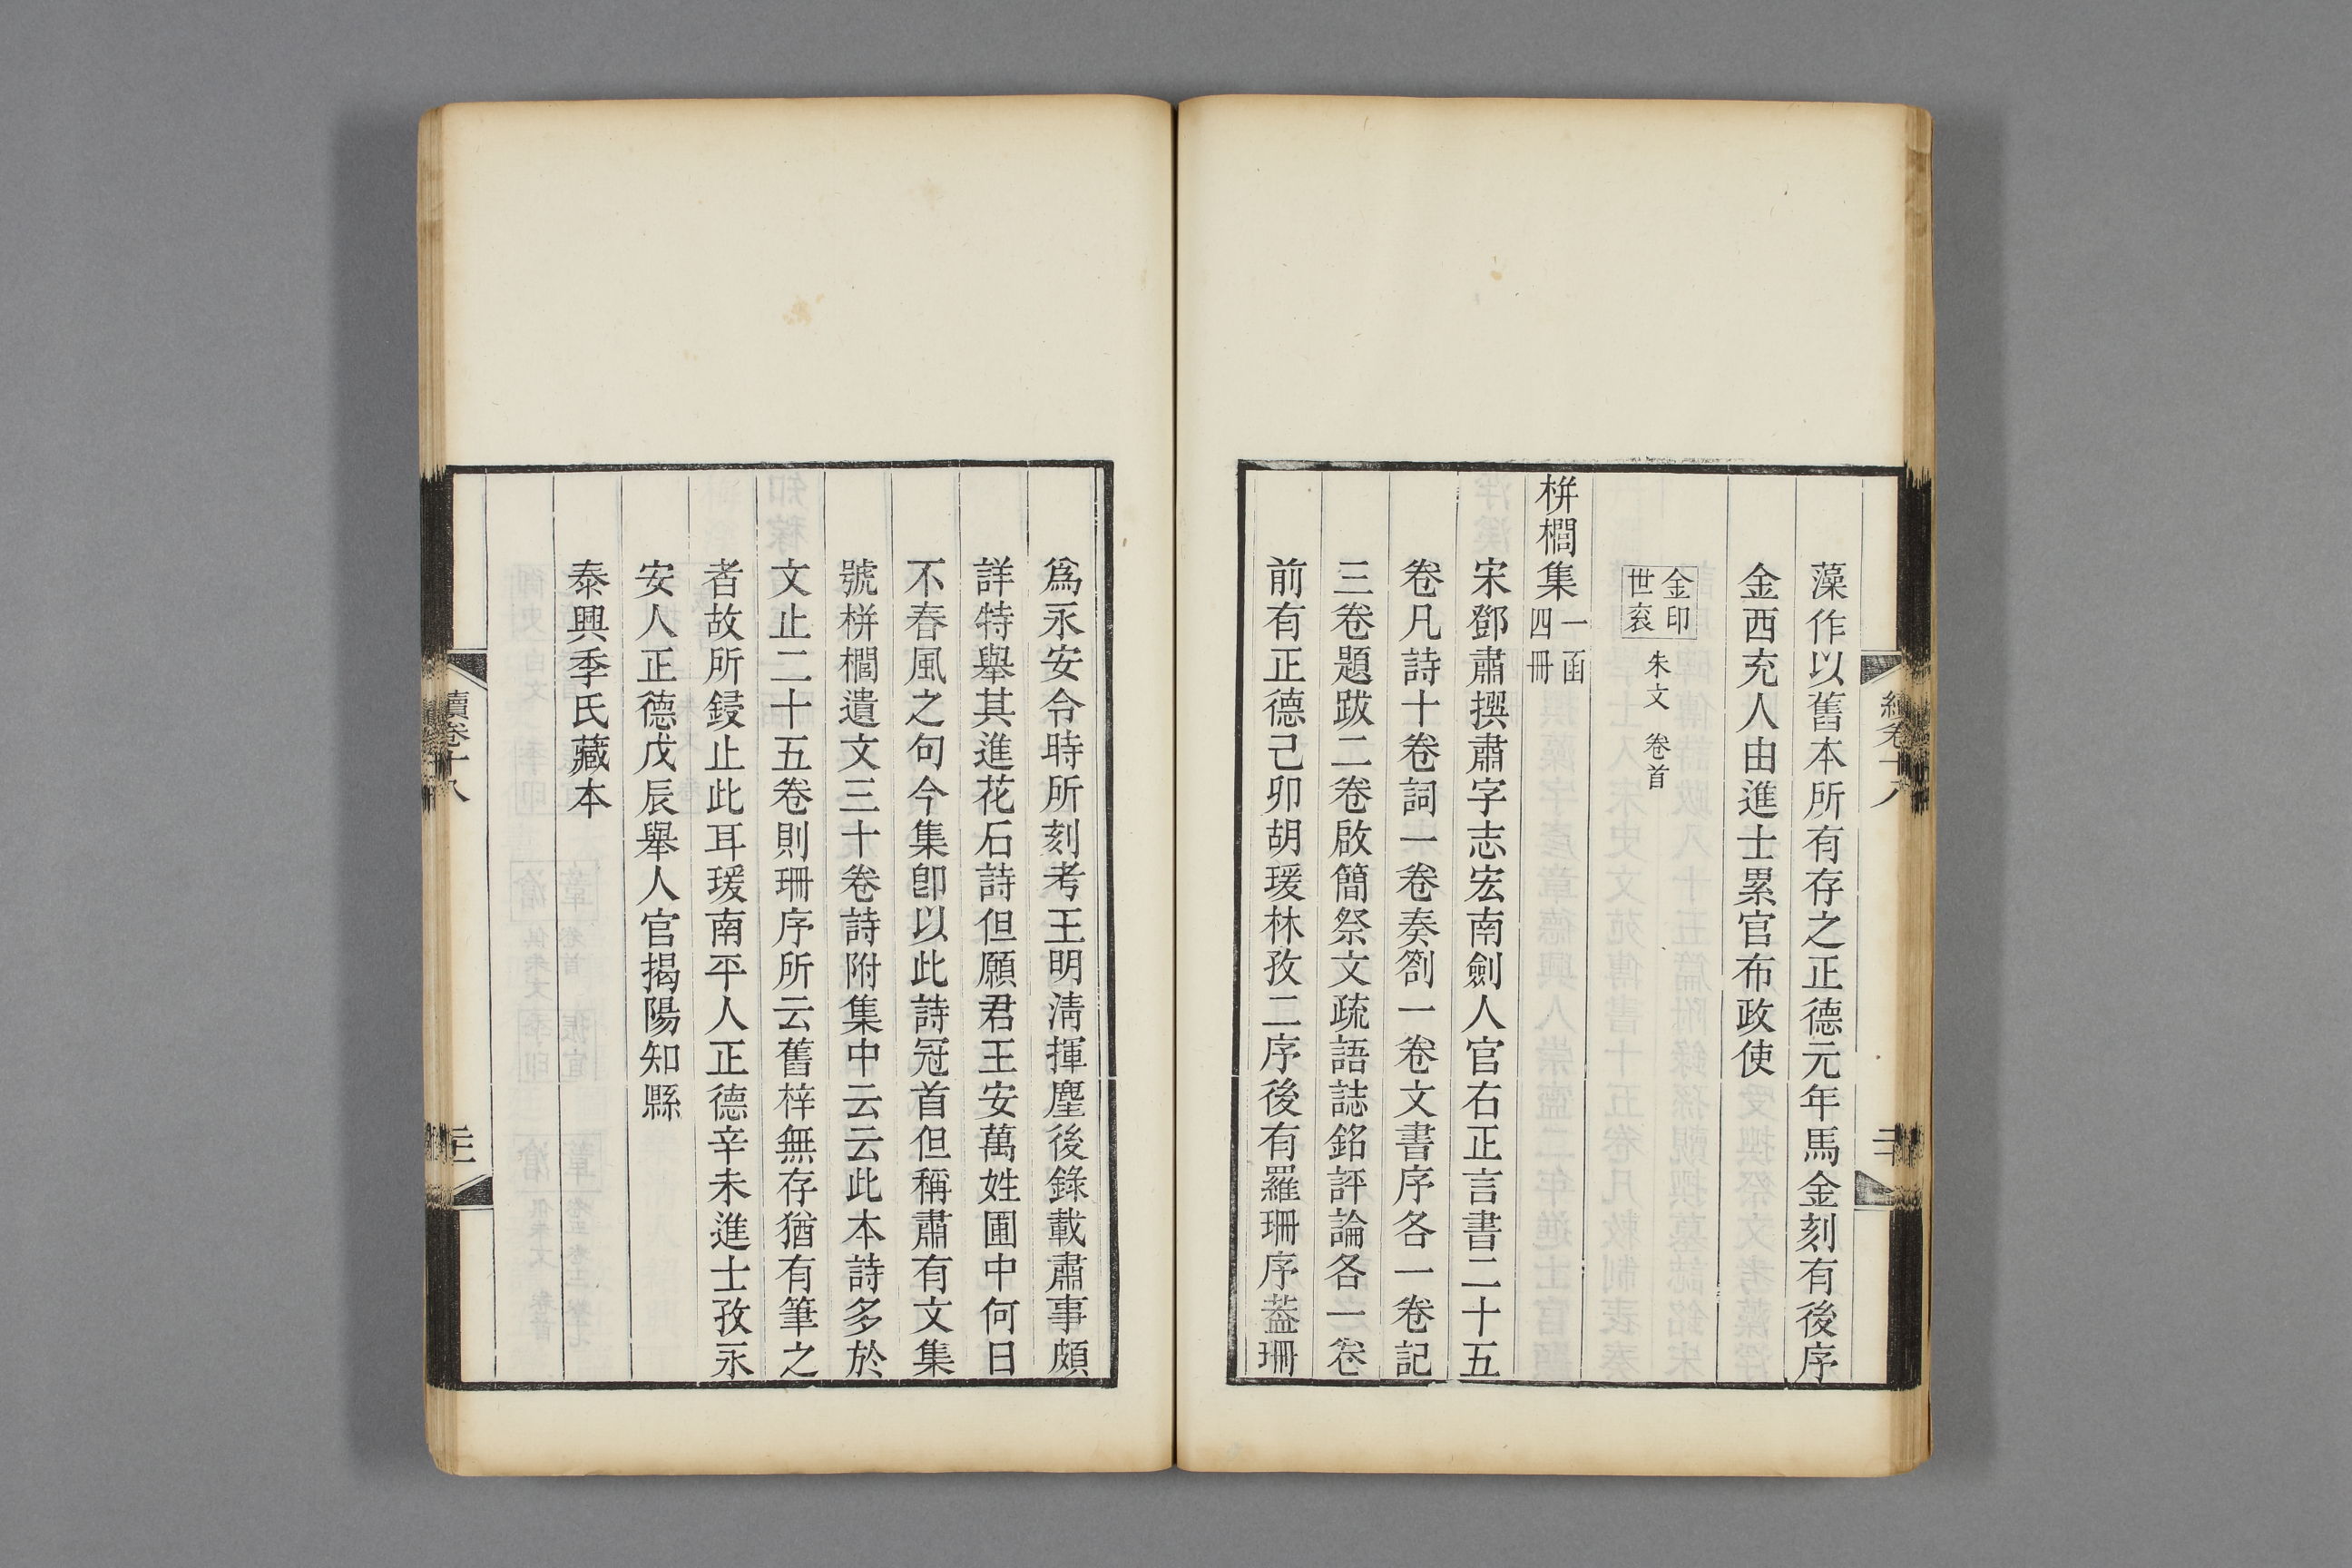 藻作以舊本所有存之正德元年馬金刻有後序
金西充人由進士累官布政使
金印
世袞
朱文 卷首
栟櫚集
一函
四冊
宋鄧肅撰肅字志宏南劍人官右正言書二十五
卷凡詩十卷詞一卷奏劄一卷文書序各一卷記
三卷題跋二卷啟簡祭文疏語誌銘評論各一卷
前有正德己卯胡瑗林孜二序後有羅珊序葢珊
爲永安令時所刻考王明清揮麈後錄載肅事頗
詳特舉其進花石詩但願君王安萬姓圃中何日
不春風之句今集卽以此詩冠首但稱肅有文集
號栟櫚遺文三十卷詩附集中云云此本詩多於
文止二十五卷則珊序所云舊梓無存猶有筆之
者故所鋟止此耳瑗南平人正德辛未進士孜永
安人正德戊辰舉人官揭陽知縣
泰興季氏藏本
續卷十八